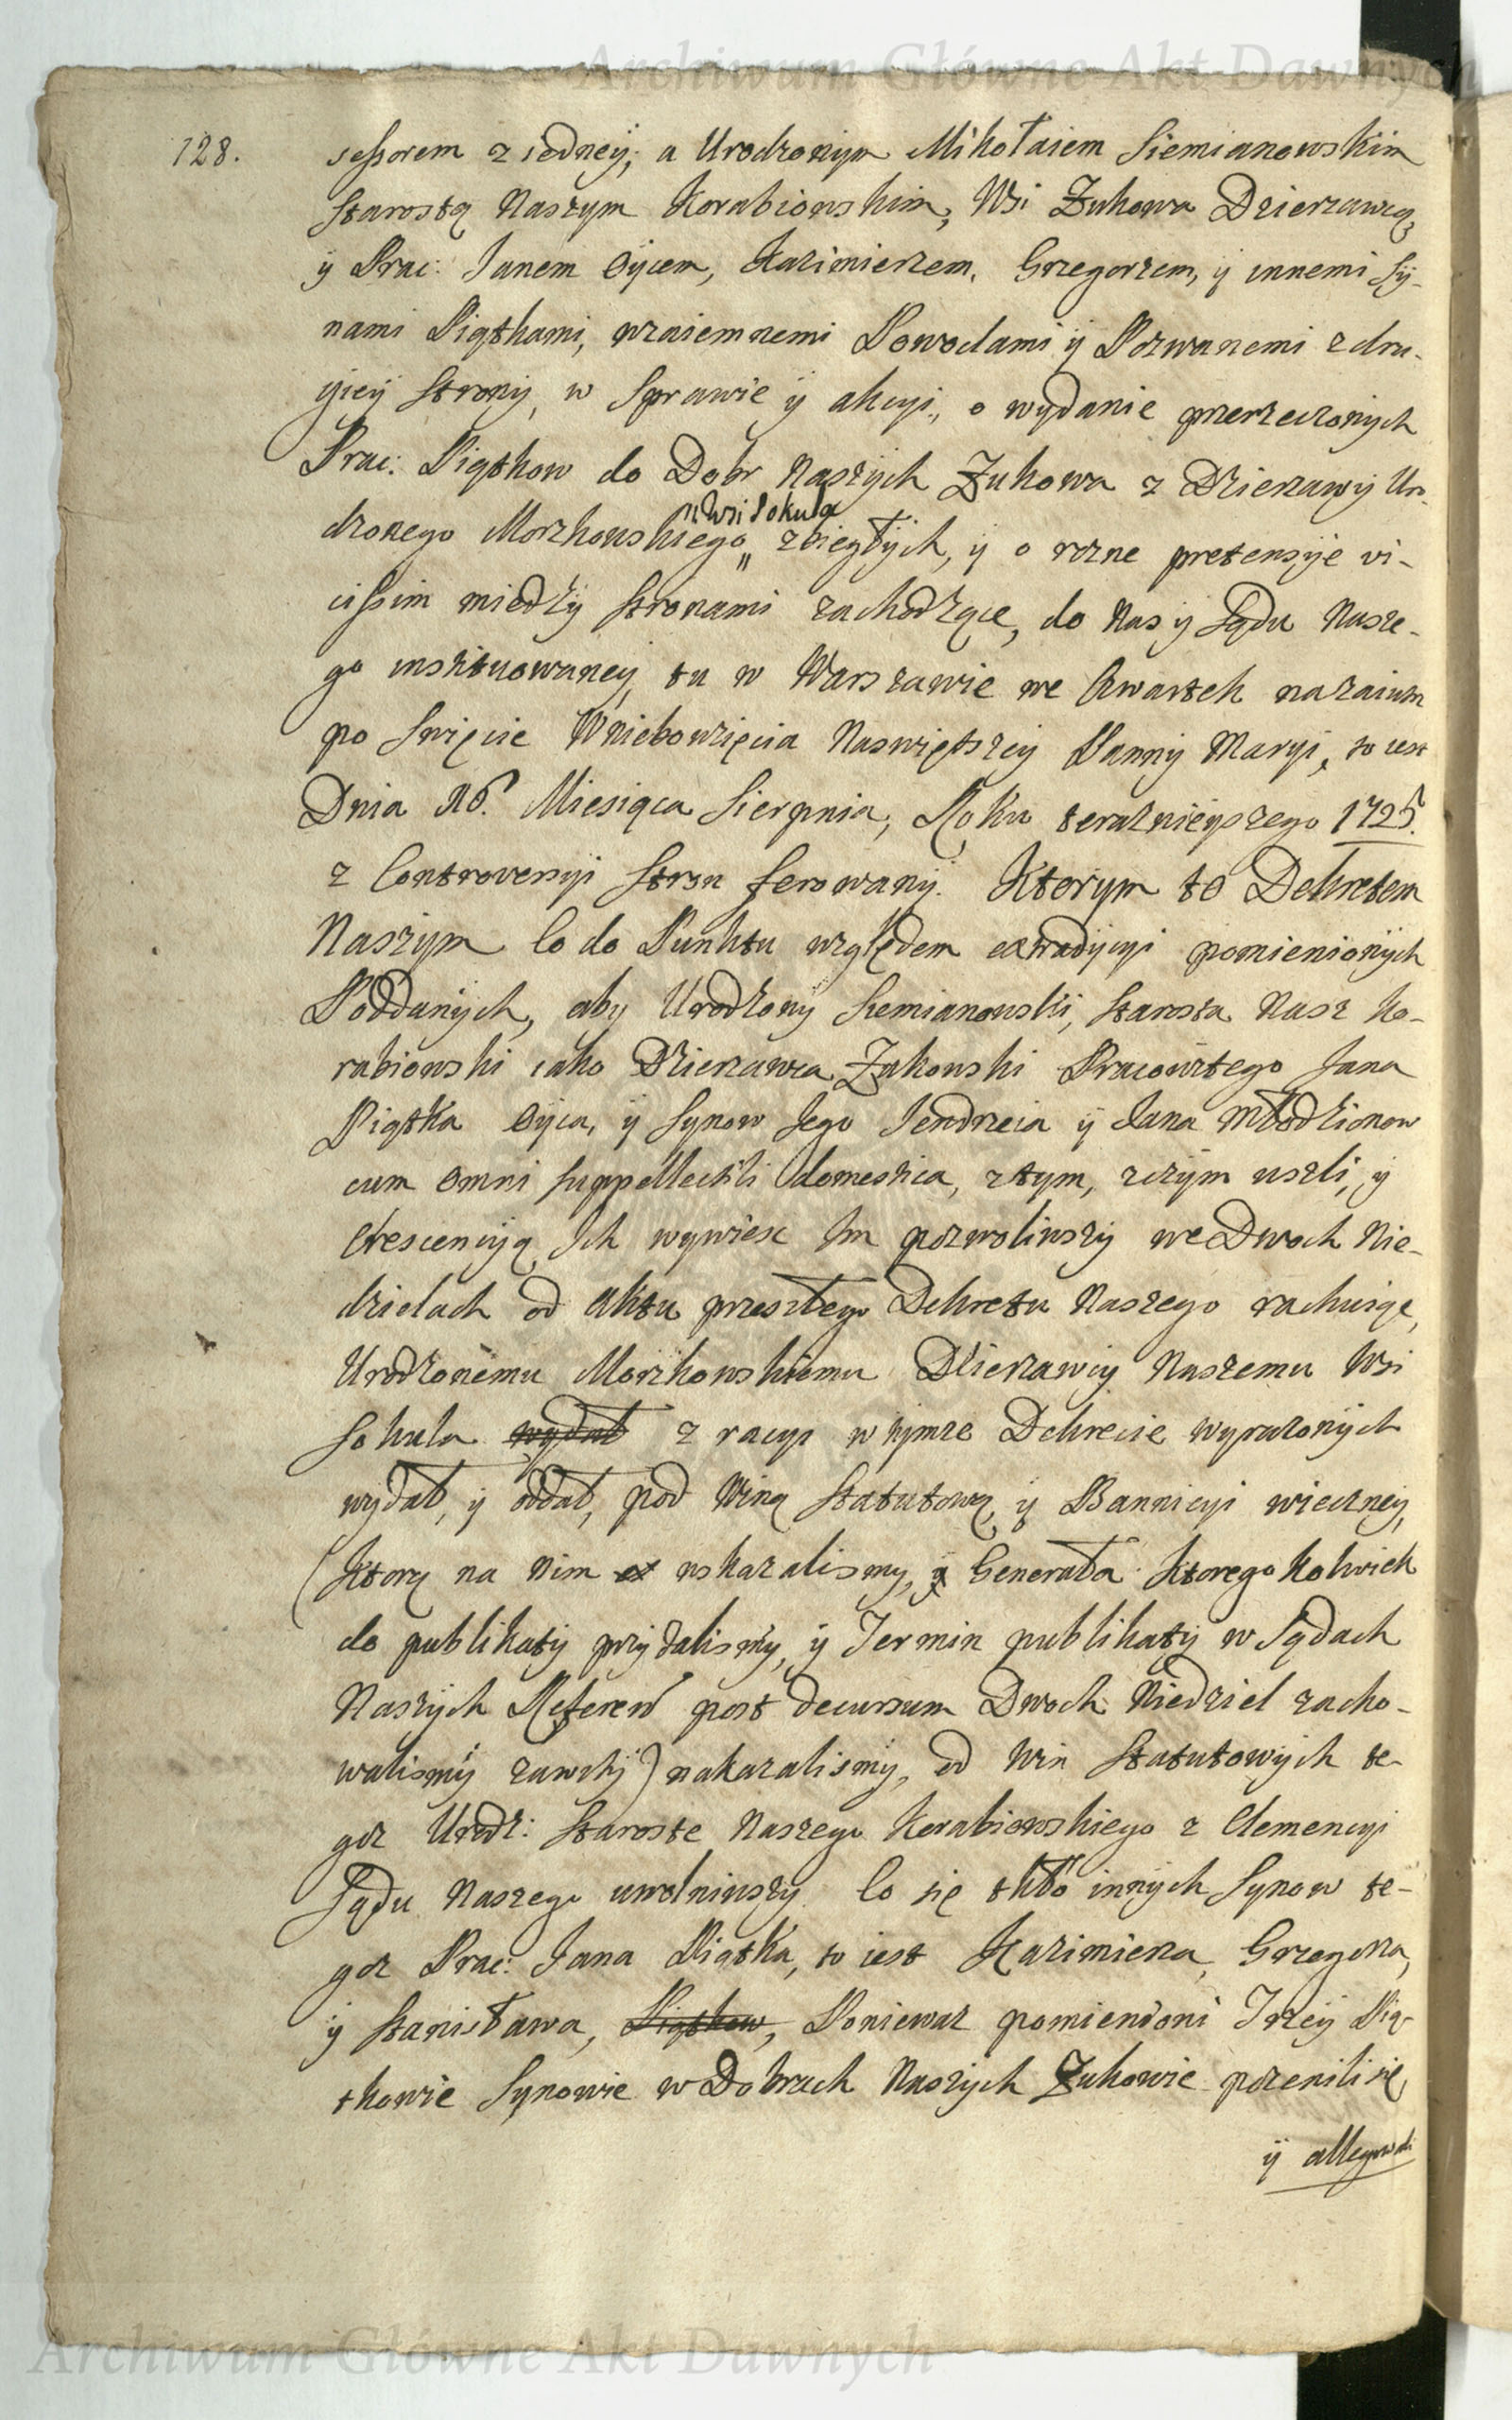 Archiwum Główne Akt Dawnych
128.
seſsorem z iedney, a Urodzonym Mikołaiem Siemianowskim
Starostą Naszym Korabiowskim, Wsi Zukowa Dzierzawcą,
ÿ Prac: Janem Oÿcem, Kazimierzem, Grzegorzem, ÿ innemi Sÿ-
nami Piątkami, wzaiemnemi Powodami ÿ Pozwanemi z dru-
giey Strony, w Sprawie ÿ akcyi, o wydanie przerzeczonych
Prac: Piątkow do Dobr Naszych Zukowa z Dzierzawy Uro-
wsi Sokula
dzonego Morzkowskiego zbiegłych, ÿ o rozne pretensye vi-
ciſsim między Stronami zachodzące, do Nas ÿ Sądu Nasze-
go instituowaney, tu w Warszawie we Czwartek nazaiutrz
po Swięcie Wniebowzięcia Naswiętszey Panny Maryi, to iest
Dnia 16. Miesiąca Sierpnia, Roku teraznieyszego 1725.
z Controversyi Stron ferowany. Ktorym to Dekretem
Naszym Co do Punktu względem extradycyi pomienionych
Poddanych, aby Urodzony Siemianowski, Starosta Nasz Ko-
rabiowski iako Dzierzawca Zukowski Pracowitego Jana
Piątka Oyca, ÿ Synow Jego Jendrzeia ÿ Jana Młodzionow
cum omni suppellectili domestica, z tym, z czym uszli, ÿ
Crescencyą Ich wywiesc Im pozwoliwszy we Dwoch Nie-
dzielach od Aktu przeszłego Dekretu Naszego rachuiąc,
Urodzonemu Morzkowskiemu Dzierzawcy Naszemu Wsi
Sokula wydał z racyi w tymze Dekrecie wyrazonych
wydał, ÿ oddał, pod Winą Statutową, ÿ Bannicyi wieczney,
(Ktorą na Nim wskazalismy, ÿ Generała Ktoregokolwiek
do publikaty przydalismy, ÿ Termin publikaty w Sądach
Naszych Referen post decursum Dwoch Niedziel zacho-
walismy zawity) nakazalismy, od Win Statutowych te-
goz Urodz: Staroste Naszego Korabiowskiego z Clemencyi
Sądu Naszego uwolniwszy. Co się tkło innych Synow te-
goz Prac: Jana Piątka, to iest Kazimierza, Grzegorza,
ÿ Stanisława, Piątkow, Poniewaz pomienioni Trzey Pią-
tkowie Synowie w Dobrach Naszych Zukowie pozenili się,
ÿ allegowali
Archiwum Główne Akt Dawnych